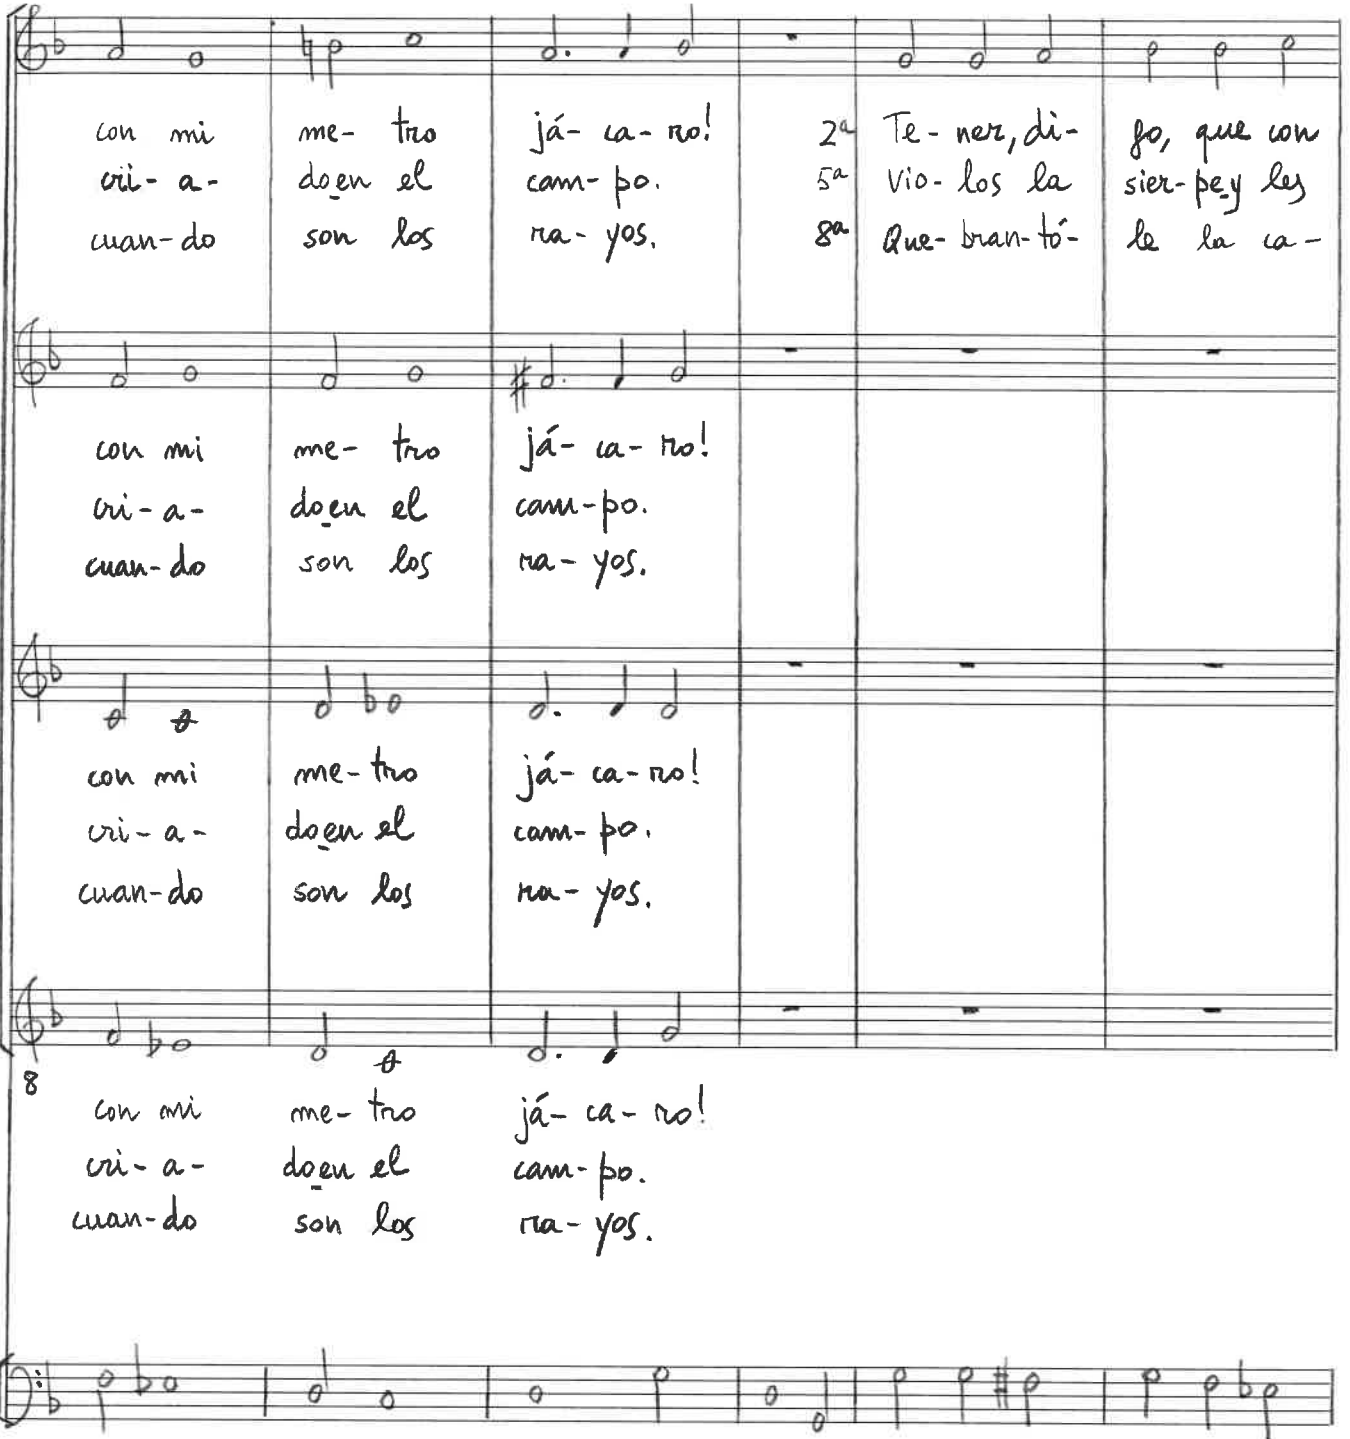 con mi me- tro já- ca- ro! 2ª Te- ner, di- go, que con
cri- a- do‿en el cam- po. 5ª Vio- los la sier- pe‿y les
cuan- do son los ra- yos. 8ª Que- bran- tó- le la ca-
con mi me- tro já- ca- ro!
cri- a- do‿en el cam- po.
cuan- do son los ra- yos.
con mi me- tro já- ca- ro!
cri- a- do‿en el cam- po.
cuan- do son los ra- yos.
8
con mi me- tro já- ca- ro!
cri- a- do‿en el cam- po.
cuan- do son los ra- yos.